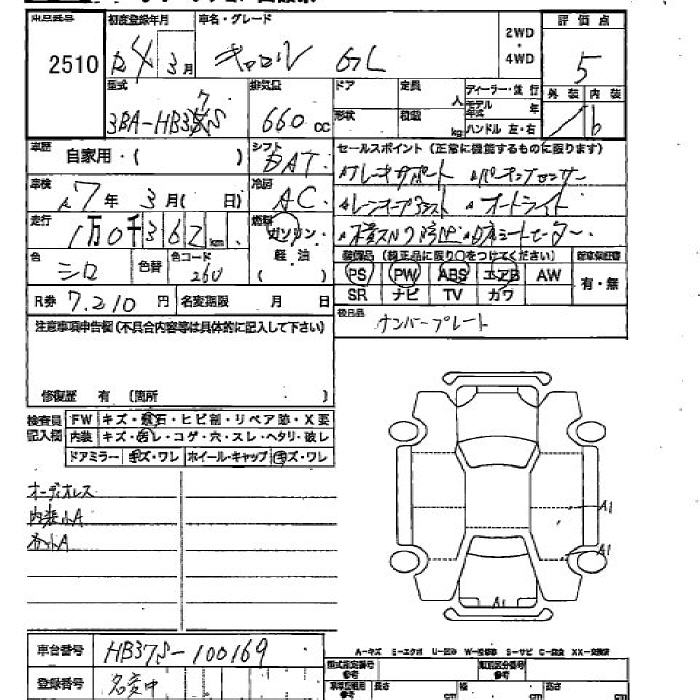 2510
初度登録年月
R4 3月
車名・グレード
キャロル GL
2WD
・
4WD
評価点
5
外装 内装
B
型式
3BA-HB37S
排気量
660 cc
ドア
形状
定員
人
積載
kg
ディーラー・並行
モデル年式 年
ハンドル 左・右
車歴
自家用・( )
シフト
DAT
セールスポイント (正常に機能するものに限ります)
ブレーキサポート パーキングセンサー
レーンキープアシスト オートライト
横スベリ防止 D席シートヒーター
車検
R7年 3月( 日)
冷房
AC
走行
1万0千362km
燃料
ガソリン・
軽油
色
シロ
色替
色コード
26U
装備品 (純正品に限り○をつけてください)
PS PW ABS エアB AW
SR ナビ TV カワ
新車保証書
有・無
R券 7,210円
名変期限 月 日
後日品
ナンバープレート
注意事項申告欄(不具合内容等は具体的に記入して下さい)
修復歴 有 (箇所 )
検査員記入欄
FW キズ・飛石・ヒビ割・リペア跡・X要
内装 キズ・汚レ・コゲ・穴・スレ・ヘタリ・破レ
ドアミラー キズ・ワレ ホイール・キャップ キズ・ワレ
オーディオレス
内装小A
外小A
A1
A1
A1
車台番号
HB37S-100169
登録番号
名変中
A-キズ E-エクボ U-凹み W-補修跡 S-サビ C-腐食 XX-交換済
型式指定番号
参考
類別区分番号
参考
長さ cm
幅 cm
高さ cm